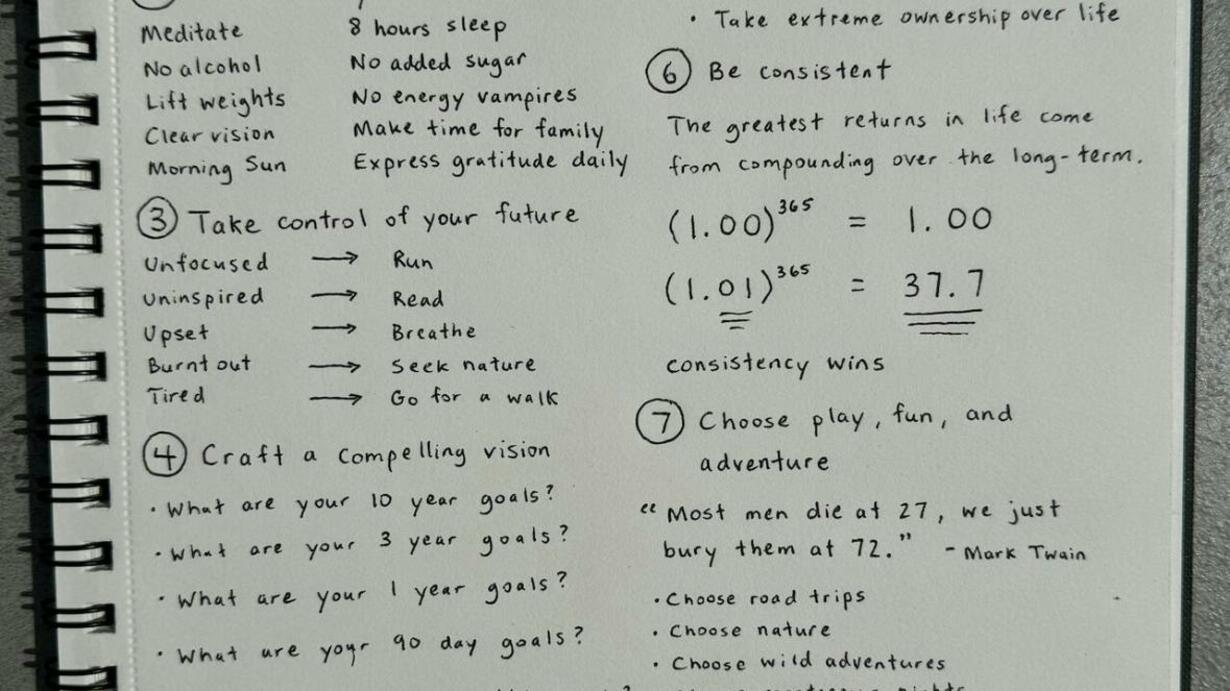 Meditate 8 hours sleep
No alcohol No added sugar
Lift weights No energy vampires
Clear vision Make time for family
Morning Sun Express gratitude daily
3 Take control of your future
Unfocused → Run
Uninspired → Read
Upset → Breathe
Burnt out → Seek nature
Tired → Go for a walk
4 Craft a compelling vision
• What are your 10 year goals?
• What are your 3 year goals?
• What are your 1 year goals?
• What are your 90 day goals?
• Take extreme ownership over life
6 Be consistent
The greatest returns in life come
from compounding over the long-term.
(1.00)^365 = 1.00
(1.01)^365 = 37.7
consistency wins
7 Choose play, fun, and
adventure
"Most men die at 27, we just
bury them at 72." - Mark Twain
• Choose road trips
• Choose nature
• Choose wild adventures